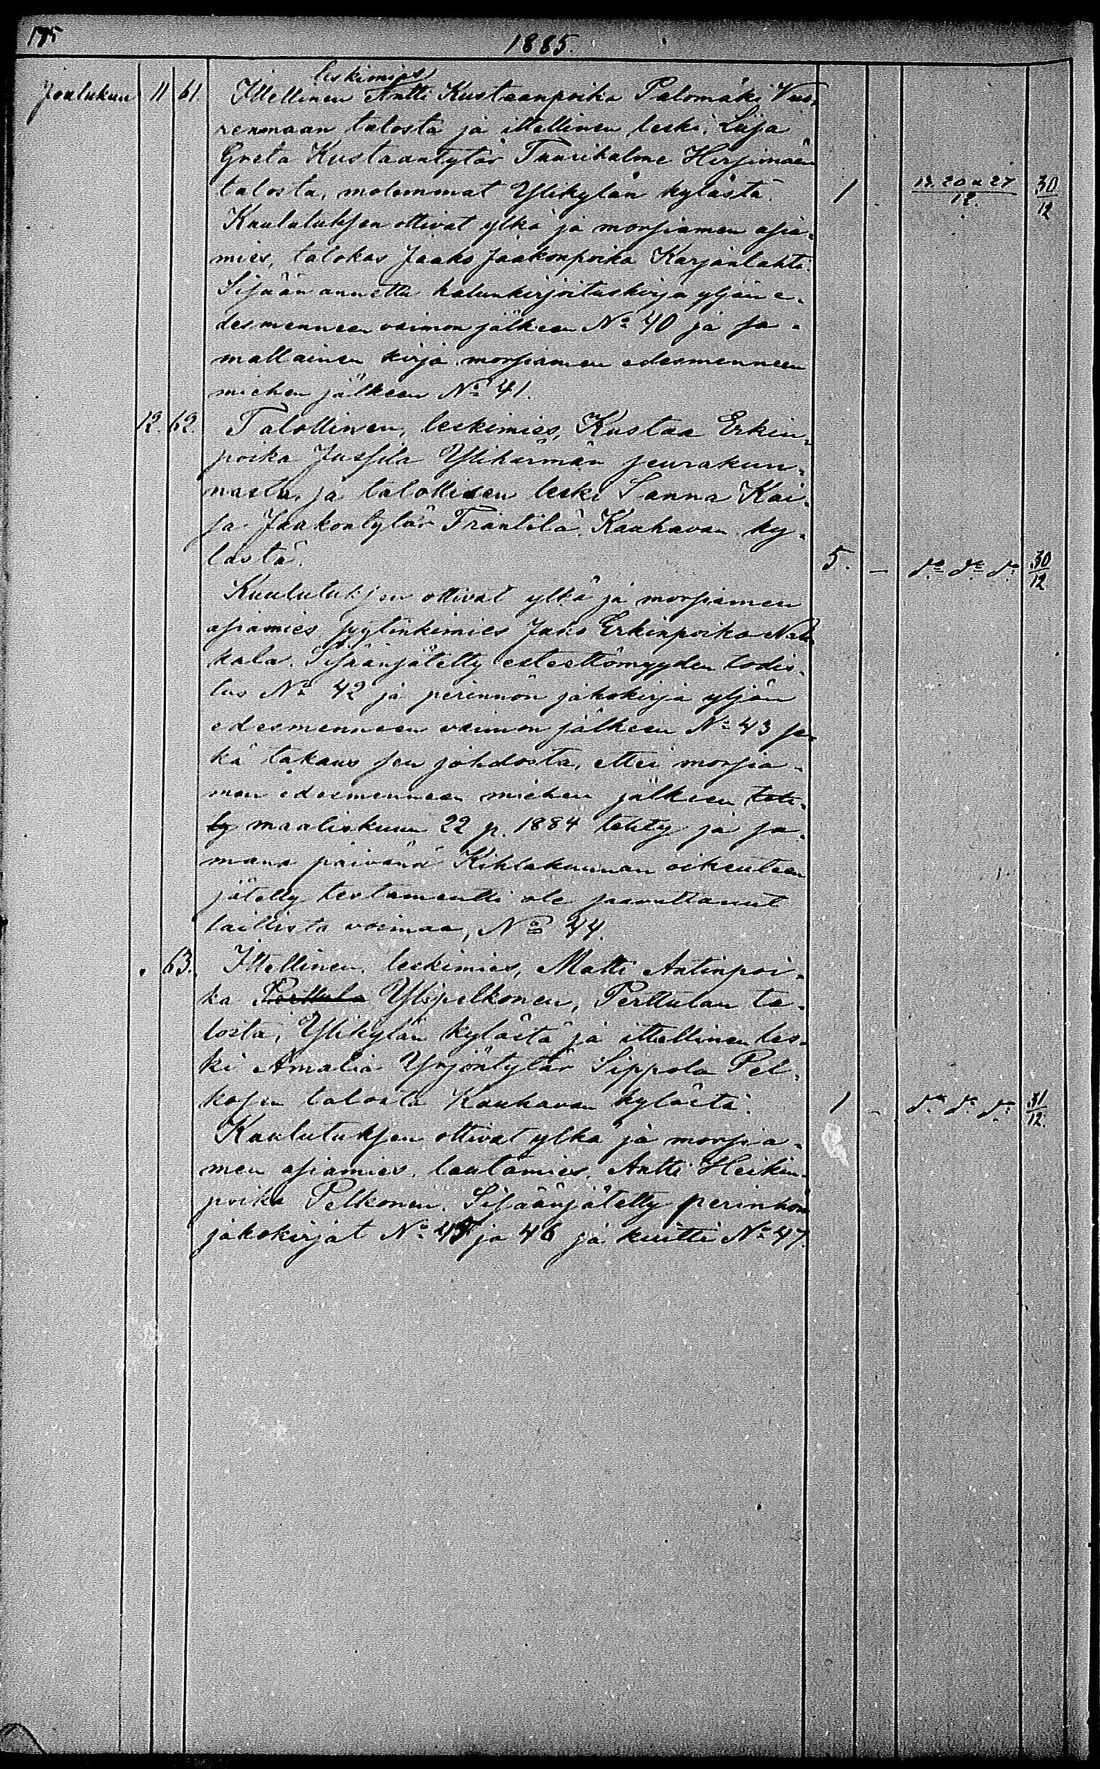 175
1885.
Joulukuu 11 61. Ittellinen leskimies Antti Kustaanpoika Palomäki Vuo-
renmaan talosta ja ittellinen leski, Liisa
Greta Kustaantytär Tuurikalme Hirsimäen
talosta, molemmat Ylikylän kylästä. 1 - 13. 20 a 27/12. 30/12
Kuulutuksen ottivat ylkä ja morsiamen asia-
mies, talokas Jaako Jaakonpoika Karjanlahti.
Sisään annettu kalunkirjoituskirja yljän e-
desmenneen vaimon jälkeen No 40 ja sa-
mallainen kirja morsiamen edesmenneen
miehen jälkeen No 41.
12. 62. Talollinen, leskimies, Kustaa Erkin-
poika Jussila Ylihärmän seurakun-
nasta, ja talollisen leski Sanna Kai-
sa Jaakontytär Träntilä, Kauhavan ky-
lästä. 5. - do do do 30/12
Kuulutuksen ottivat ylkä ja morsiamen
asiamies pytinkimies Jako Erkinpoika
kala. Sisäänjätetty esteettömyyden todis-
tus No 42 ja perinnön jakokirja yljän
edesmenneen vaimon jälkeen No 43 se-
kä takaus sen johdosta, ettei morsia-
men edesmenneen miehen jälkeen teh-
ty maaliskuun 22 p. 1884 tehty ja sa-
mana päivänä Kihlakunnan oikeuteen
jätetty testamentti ole saavuttanut
laillista voimaa, No 44.
. 63. Ittellinen, leskimies, Matti Antinpoi-
ka Perttula Ylipelkonen, Perttulan ta-
losta, Ylikylän kylästä ja ittellinen les-
ki Amalia Yrjöntytär Sippola Pel-
kosen talosta Kauhavan kylästä. 1 - do do do 31/12.
Kuulutuksen ottivat ylkä ja morsia-
men asiamies, lautamies, Antti Heikin-
poika Pelkonen. Sisäänjätetty perinnön
jakokirjat No 45 ja 46 ja kuitti No 47.